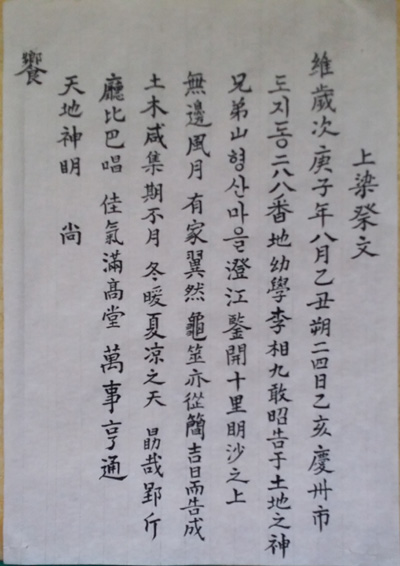 上梁祭文
維歲次庚子年八月乙丑朔二四日乙亥慶州市
도지동二八八番地幼學李相九敢昭告于土地之神
兄弟山형산마을澄江鑿開十里明沙之上
無邊風月有家翼然龜筮亦從簡吉日而告成
土木咸集期不月 冬暖夏凉之天 勗哉郢斤
廳比巴唱 佳氣滿高堂 萬事亨通
天地神明 尙
饗